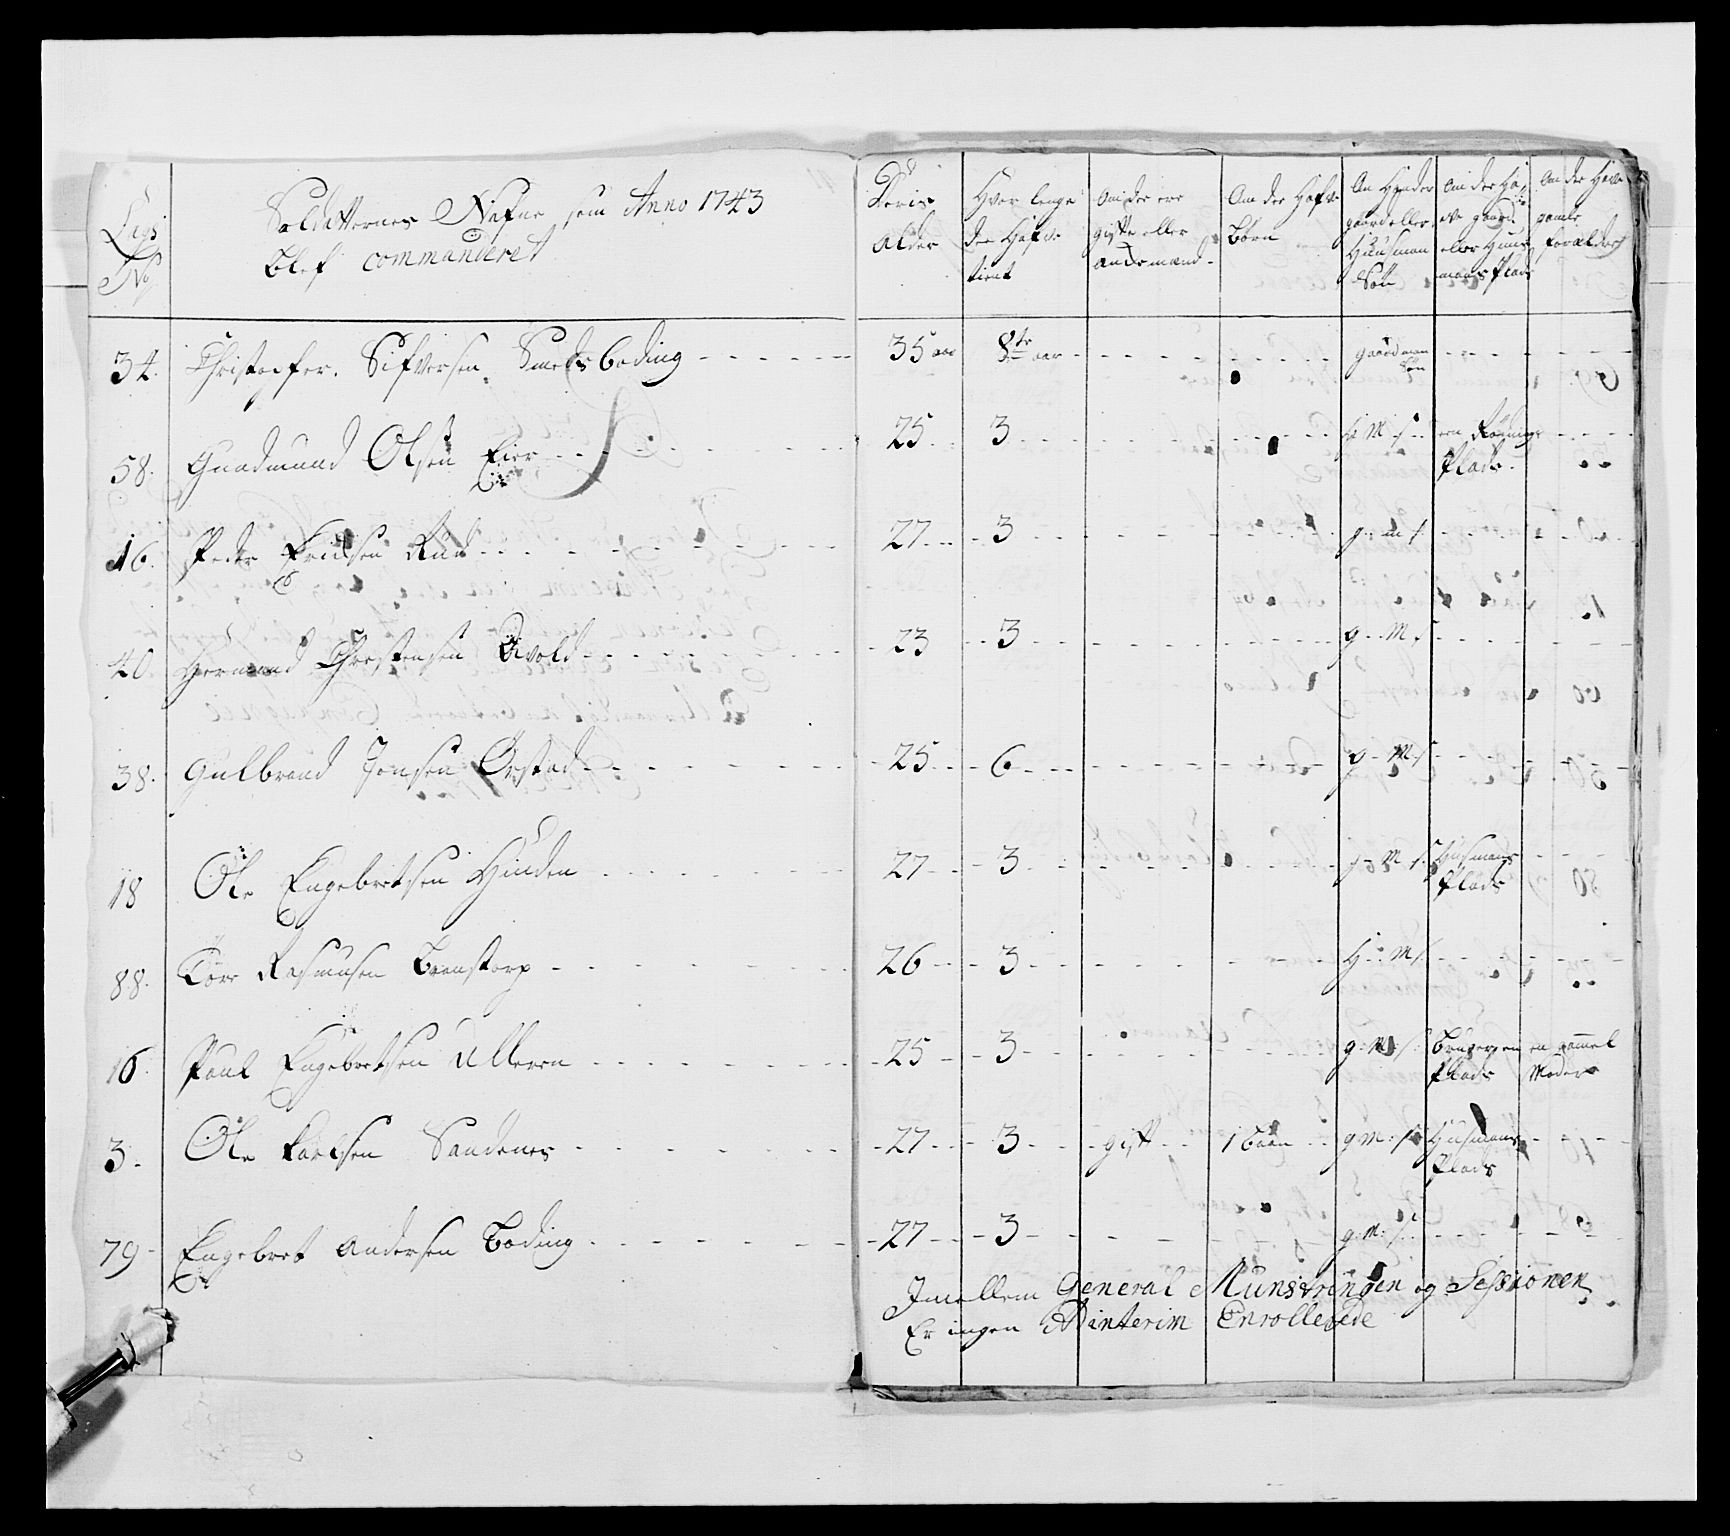 Legs
No
Soldatternes Nafne, som Anno 1743
blef commanderet
Deris
alder
Hvor lenge
de Hafve
tient
Om de ere
gifte eller
Om de Hafve
börn
gaard eller
Huusmans
Sön
Om de Ha
ve gaard
eller Huus
mands Plads
Om de Have
gamle
forældre
34. Christopfer Sifversen Smedsboding 35 aar 8te aar gaardmans Sön
58. Gudmund Olsen Eier 25 3 H M S en Rödnings Plads
16. Peder Erichsen Rud 27 3 g m s
40. Hermand Christensen Qvold 23 3 g M S
38. Gulbrand Jonsen Örstad 25 6 g M S
18 Ole Engebretsen Hinden 27 3 g M S Husmans Plads
88. Tore Rasmusen Benstorp 26 3 H M S
16. Poul Engebretsen Ullern 25 3 g M S Plads en gammel Moder
3. Ole Karlsen Sandenes 27 3 gift 1 barn g M S Husmans Plads
79 Engebret Andersen Boding 27 3 g M S
Imellem General Munstringen og Sessionen
Er ingen Adinterim Enrollerede